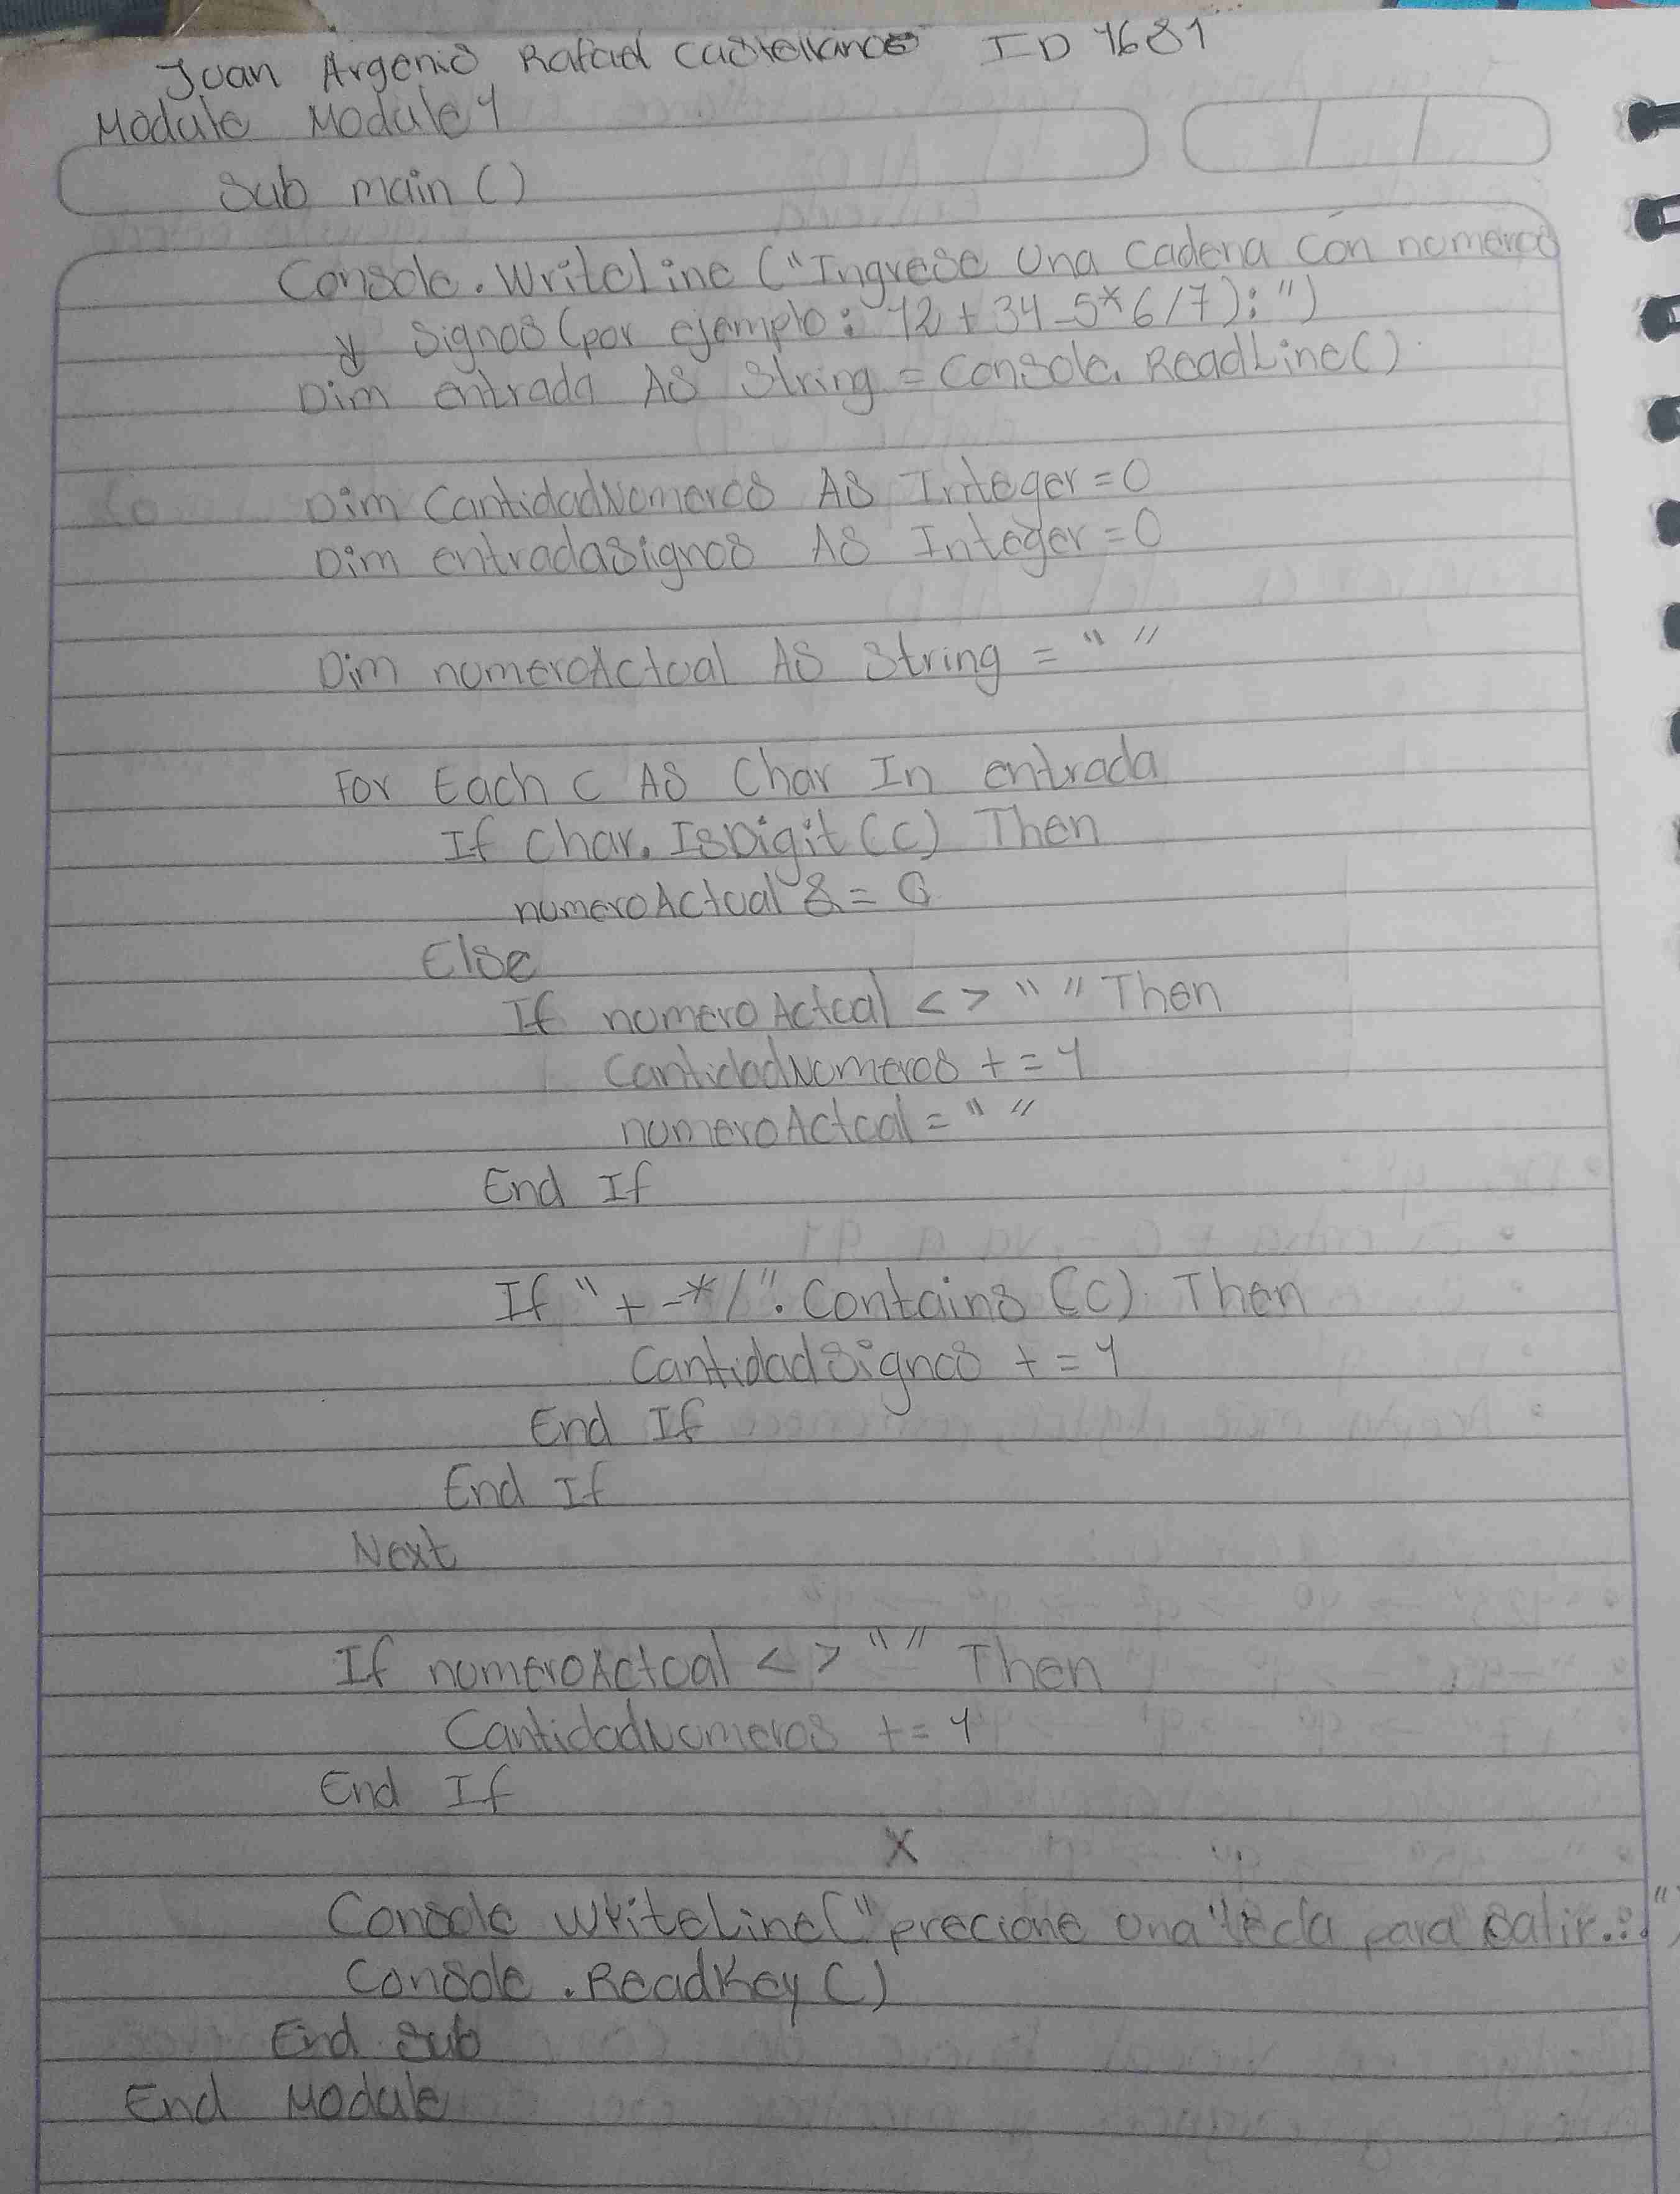 Juan Argenis Rafael Castellanos ID 1681
Module Module1
Sub main ()
Console.WriteLine ("Ingrese Una Cadena Con numeros
y Signos (por ejemplo: 12+34-5*6/7):")
Dim entrada As String = Console.ReadLine()
Dim CantidadNumeros As Integer = 0
Dim entradaSignos As Integer = 0
Dim numeroActual As String = " "
For Each C As Char In entrada
If Char.IsDigit (C) Then
numeroActual &= C
Else
If numeroActual <> " " Then
CantidadNumeros += 1
numeroActual = " "
End If
If "+-*/".Contains (C) Then
CantidadSignos += 1
End If
End If
Next
If numeroActual <> "" Then
CantidadNumeros += 1
End If
X
Console WriteLine(" precione una tecla para salir...")
Console .ReadKey ()
End Sub
End Module